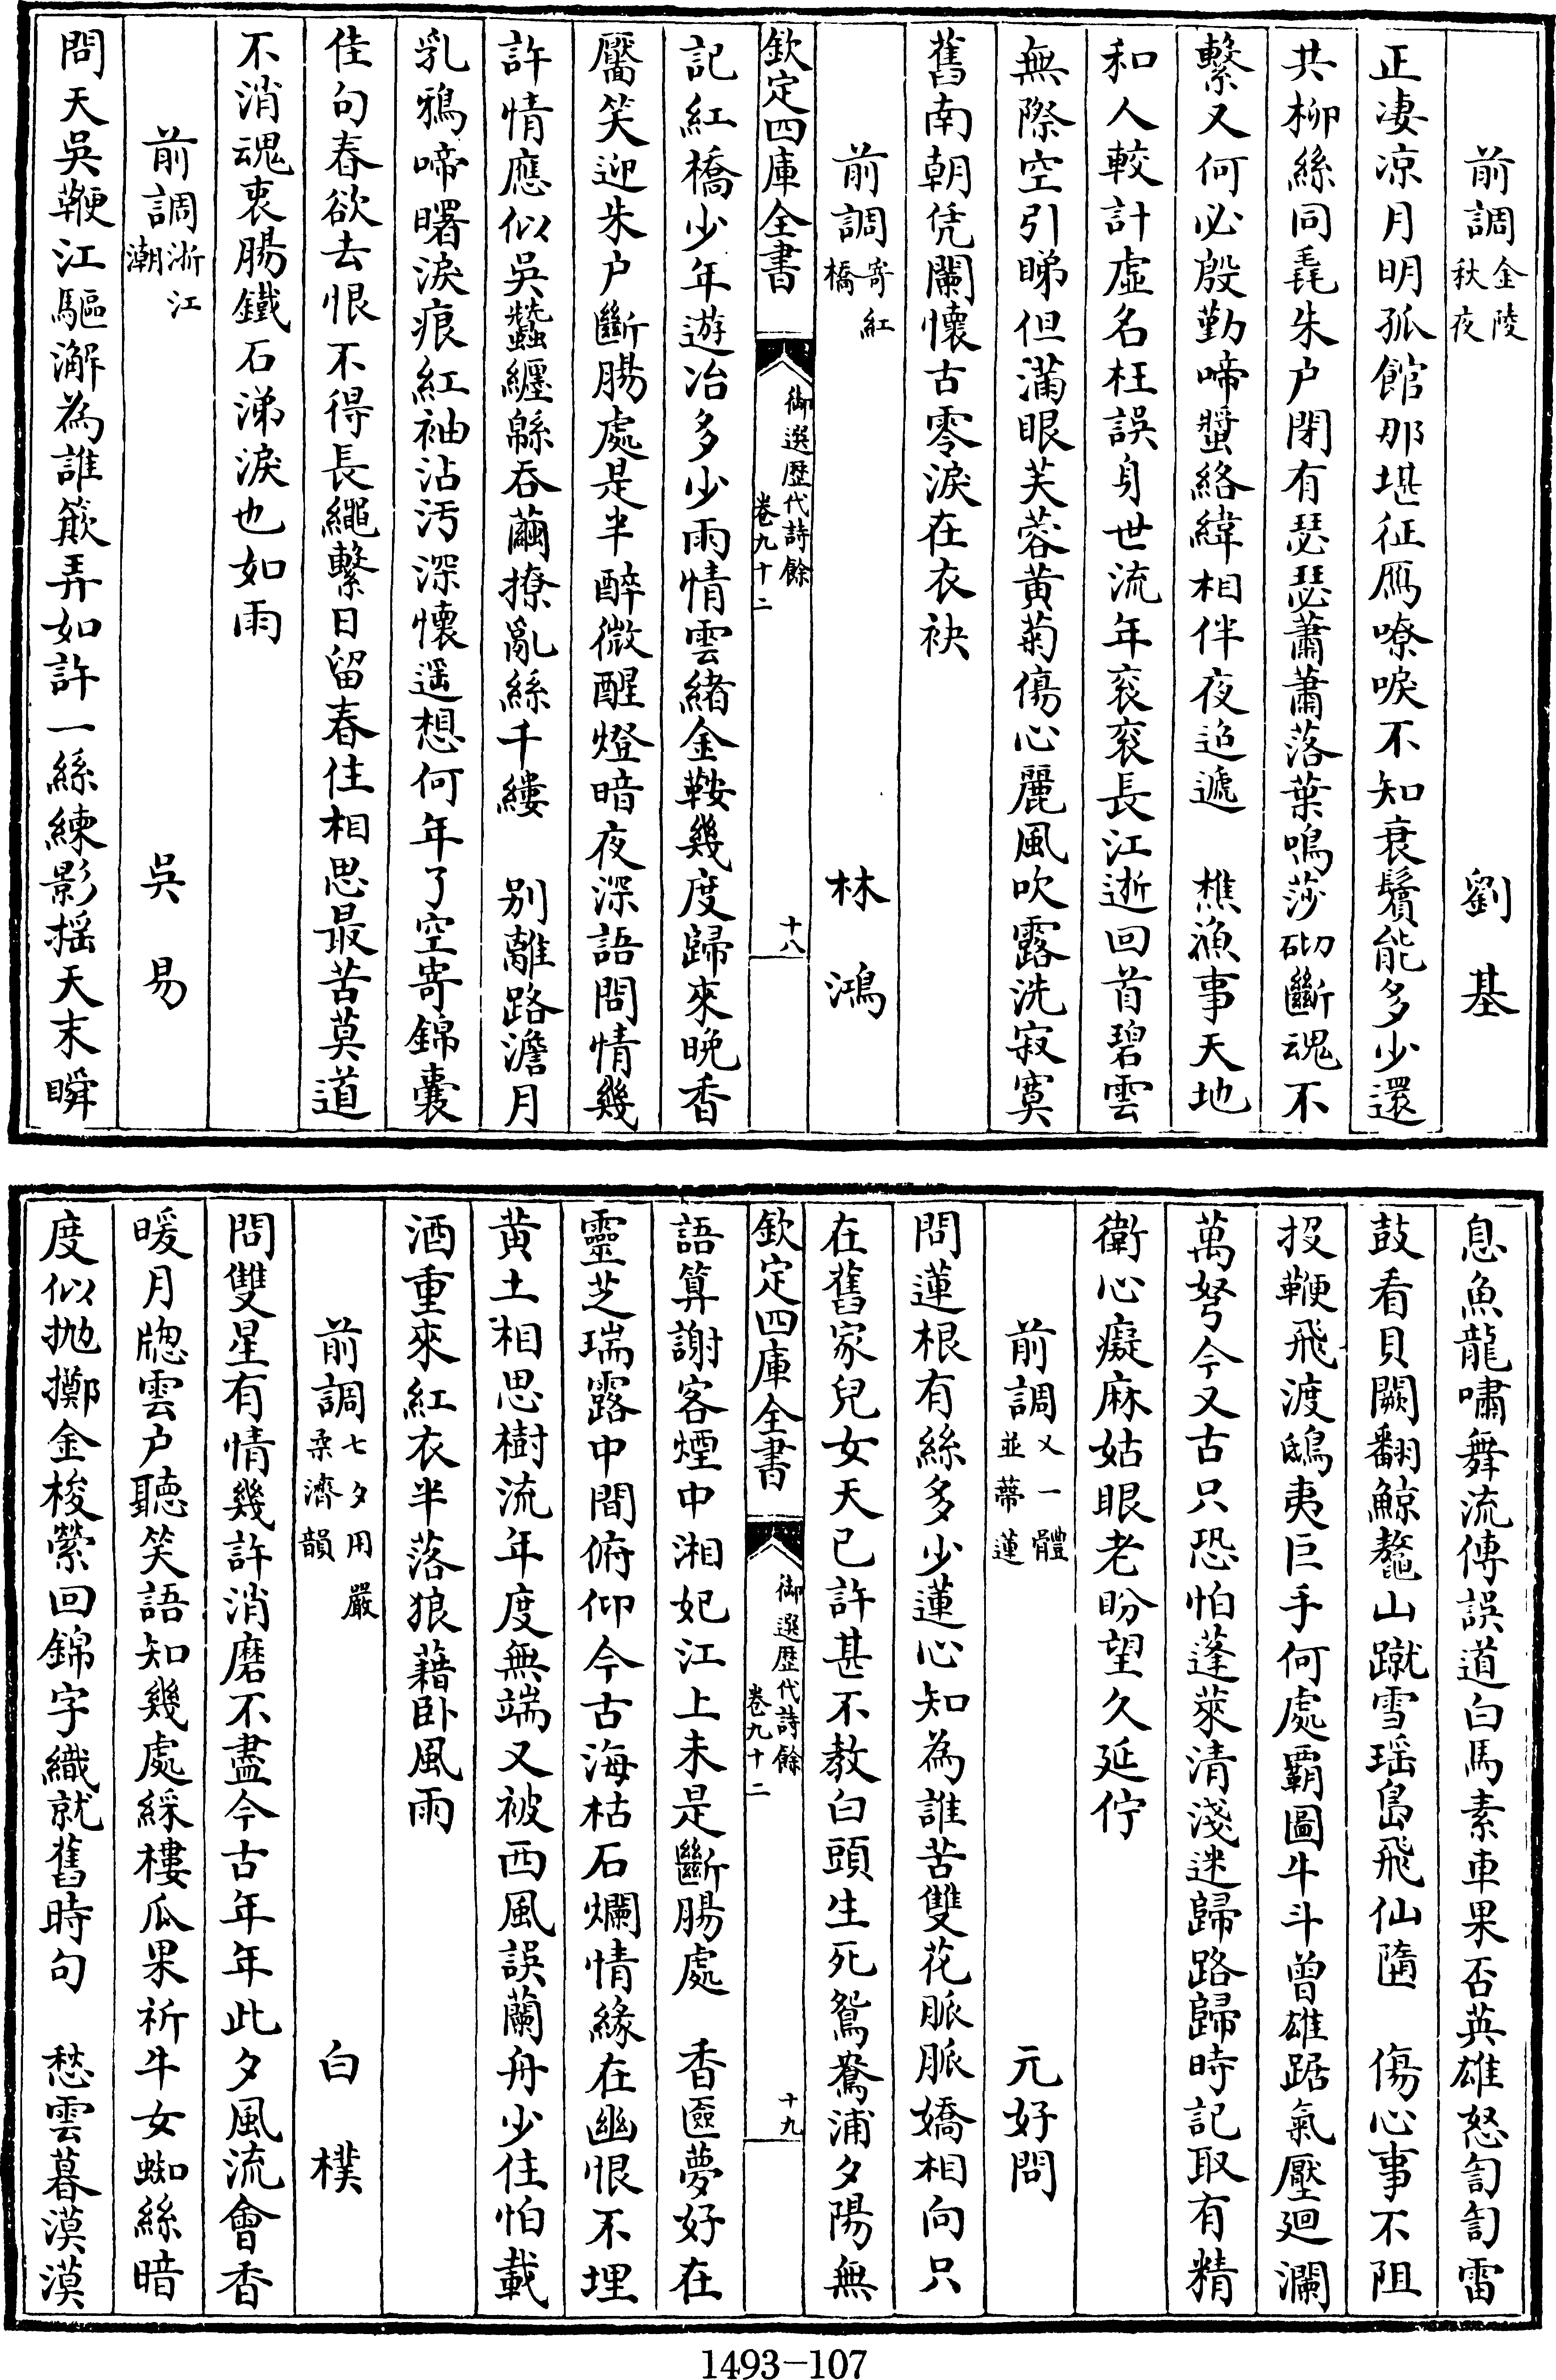 前調金陵秋夜 劉基
正凄凉月明孤館那堪征雁嘹唳不知衰鬢能多少還
共柳絲同毳朱户閉有瑟瑟蕭蕭落葉鳴莎砌斷魂不
繫又何必殷勤啼螿絡緯相伴夜迢遞 樵漁事天地
和人較計虚名枉誤身世流年衮衮長江逝回首碧雲
無際空引睇但滿眼芙蓉黄菊傷心麗風吹露洗寂寞
舊南朝凭闌懷古零淚在衣袂
前調寄紅橋 林鴻
欽定四庫全書 御選歴代詩餘 卷九十二 十八
記紅橋少年遊冶多少雨情雲緒金鞍幾度歸來晚香
靨笑迎朱户斷腸處是半醉微醒燈暗夜深語問情幾
許情應似吳蠶纒緜吞繭撩亂絲千縷 别離路澹月
乳鴉啼曙淚痕紅袖沾汚深懷遥想何年了空寄錦囊
佳句春欲去恨不得長繩繫日留春住相思最苦莫道
不消魂衷腸鐵石涕淚也如雨
前調浙江潮 吳易
問天吳鞭江驅澥為誰簸弄如許一絲練影摇天末瞬
息魚龍嘯舞流傳誤道白馬素車果否英雄怒訇訇雷
鼓看貝闕翻鯨鼇山蹴雪瑶島飛仙墮 傷心事不阻
投鞭飛渡鴟夷巨手何處覇圖牛斗曾雄踞氣壓廻瀾
萬弩今又古只恐怕蓬萊清淺迷歸路歸時記取有精
衛心癡麻姑眼老盼望久延佇
前調又一體並蒂蓮 元好問
問蓮根有絲多少蓮心知為誰苦雙花脈脈嬌相向只
在舊家兒女天已許甚不教白頭生死鴛鴦浦夕陽無
欽定四庫全書 御選歴代詩餘 卷九十二 十九
語算謝客煙中湘妃江上未是斷腸處 香匳夢好在
靈芝瑞露中間俯仰今古海枯石爛情緣在幽恨不埋
黄土相思樹流年度無端又被西風誤蘭舟少住怕載
酒重來紅衣半落狼藉卧風雨
前調七夕用嚴柔濟韻 白樸
問雙星有情幾許消磨不盡今古年年此夕風流會香
暖月牕雲户聽笑語知幾處綵樓瓜果祈牛女蜘絲暗
度似抛擲金梭縈回錦字織就舊時句 愁雲暮漠漠
1493-107